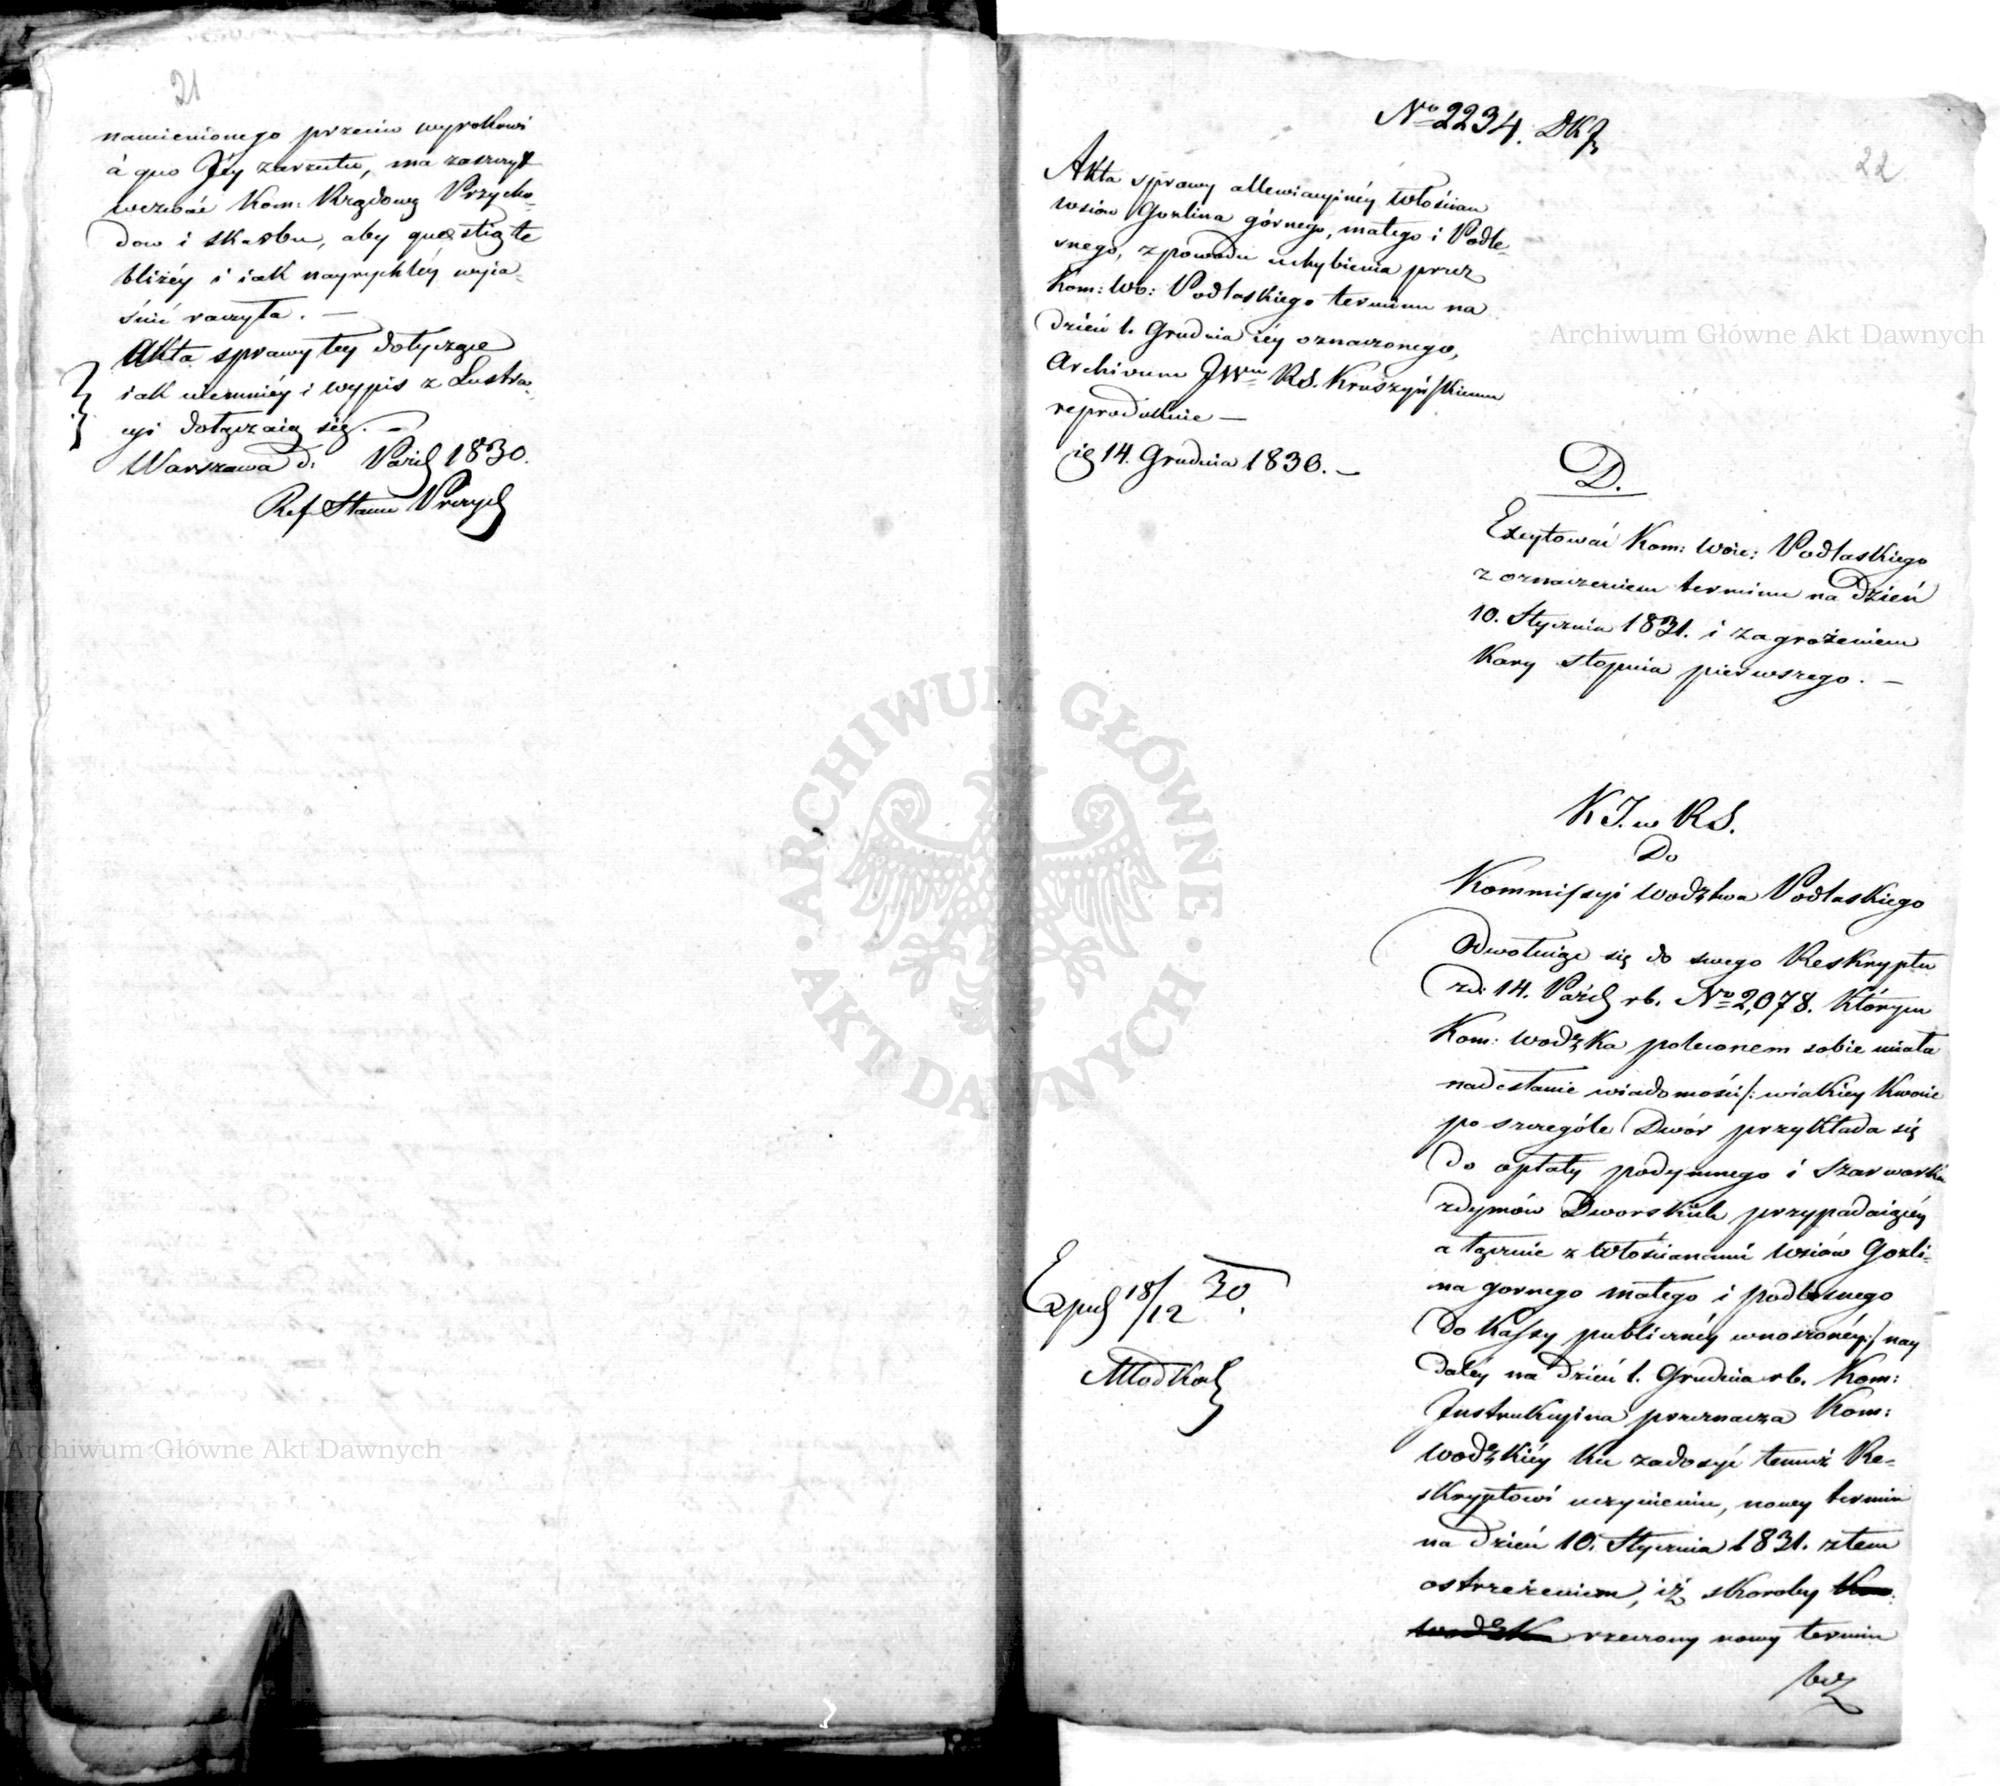 21
namienionego przeciw wyrokowi
à quo Jéy zarzutu, ma zaszczyt
wezwać Kom: Rządową Przycho-
dow i skarbu, aby quęstią te
bliżéy i iak nayrychléy wyia-
śnić raczyła. —
Akta sprawy tey dotyczące
iak niemniéy i wypis z Lustra-
cyi dołączaią się. —
Warszawa d: Paźd 1830.
Ref. Stanu
No 2234. DKJ
22
Akta sprawy allewiacyinéy włościan
wsiów Gozlina górnego, małego i Podle-
snego, z powodu uchybienia przez
Kom: Wo: Podlaskiego terminu na
dzień 1. Grudnia iéy oznaczonego,
Archivum JWmu RS. Kruszyńskiemu
reprodukuie —
14. Grudnia 1830. —
D.
Excytować Kom: Woie: Podlaskiego
z oznaczeniem terminu na dzień
10. Stycznia 1831. i zagrożeniem
Kary stopnia pierwszego. —
K J. w R S.
Do
Kommissyi Wodztwa Podlaskiego
Odwołuiąc się do swego Reskryptu
zd: 14. Paźd rb. No 2,078. którym
Kom: Wodzka poleconem sobie miała
nadesłanie wiadomości /: wiakiey kwocie
poszczególe Dwór przykłada się
do opłaty podymnego i szarwarku
zdymów Dworskich przypadaiącéy
a łącznie z włościanami wsiów Gozli-
na gornego małego i podlesnego
do Kassy publicznéy wnoszonéy:/ nay
daléy na dzień 1. Grudnia rb. Kom:
Instrukcyina przeznacza Kom:
Wodzkiéy ku zadosyć temuż Re-
skryptowi uczynieniu, nowy termin
na dzień 10. Stycznia 1831. ztem
ostrzeżeniem, iż skoroby Kom:
Wodzk rzeczony nowy termin
Exped 18/12 30.
Archiwum Główne Akt Dawnych
ARCHIWUM GŁÓWNE · AKT DAWNYCH ·
Archiwum Główne Akt Dawnych